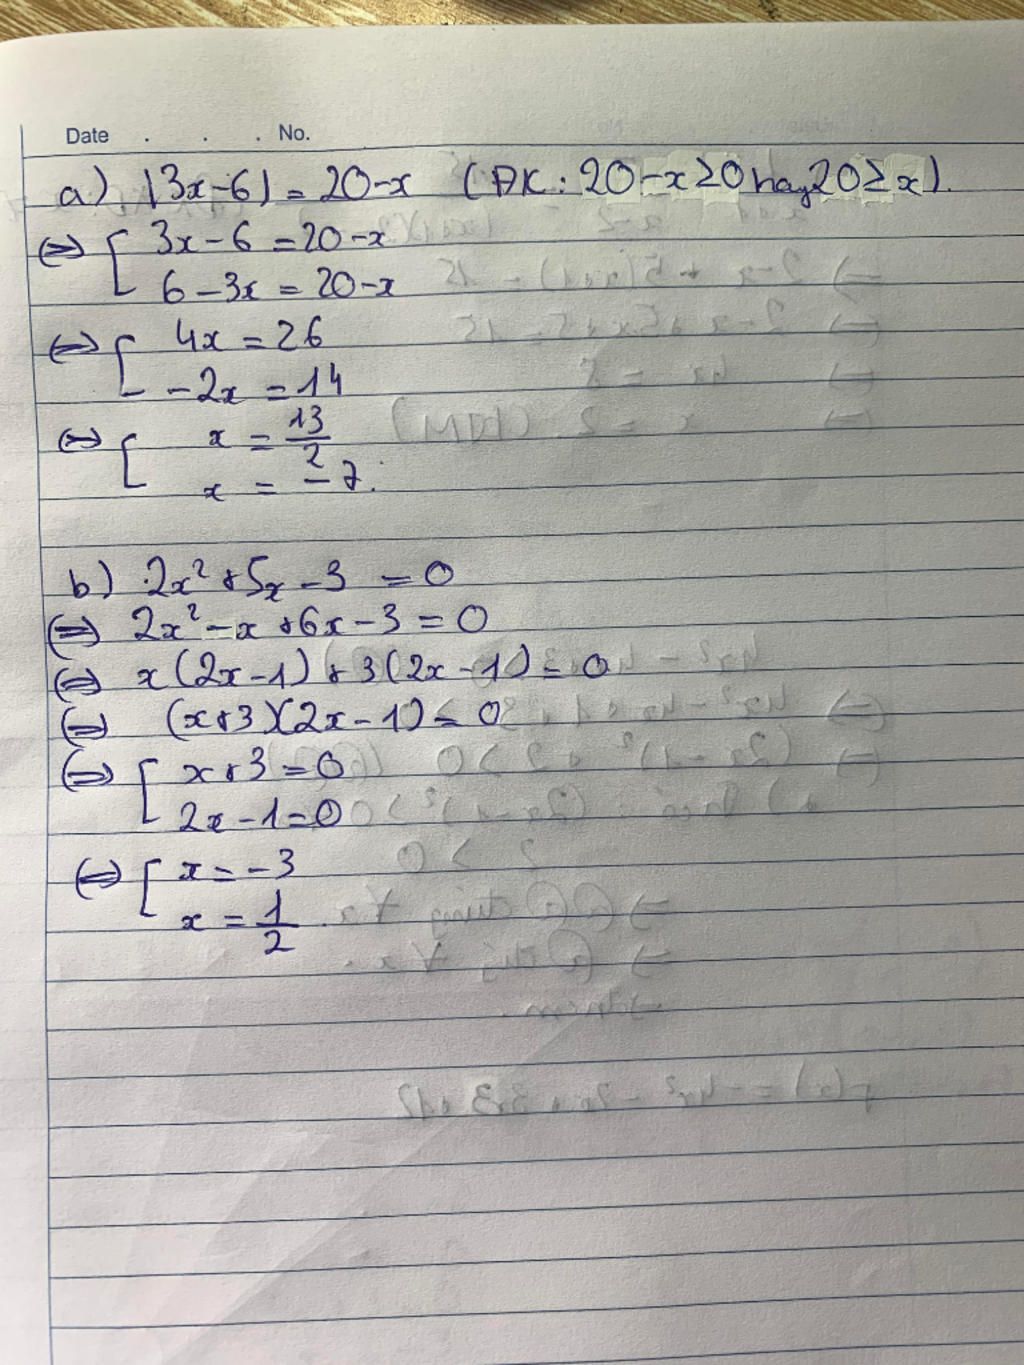 Date . . . No.
a) |3x-6| = 20-x (ĐK: 20-x≥0 hay 20≥x).
⇔ [ 3x-6 = 20-x
6-3x = 20-x
⇔ [ 4x = 26
-2x = 14
⇔ [ x = 13/2
x = -7.
b) 2x²+5x-3 = 0
⇔ 2x²-x+6x-3 = 0
⇔ x(2x-1)+3(2x-1) = 0
⇔ (x+3)(2x-1) = 0
⇔ [ x+3 = 0
2x-1 = 0
⇔ [ x = -3
x = 1/2.